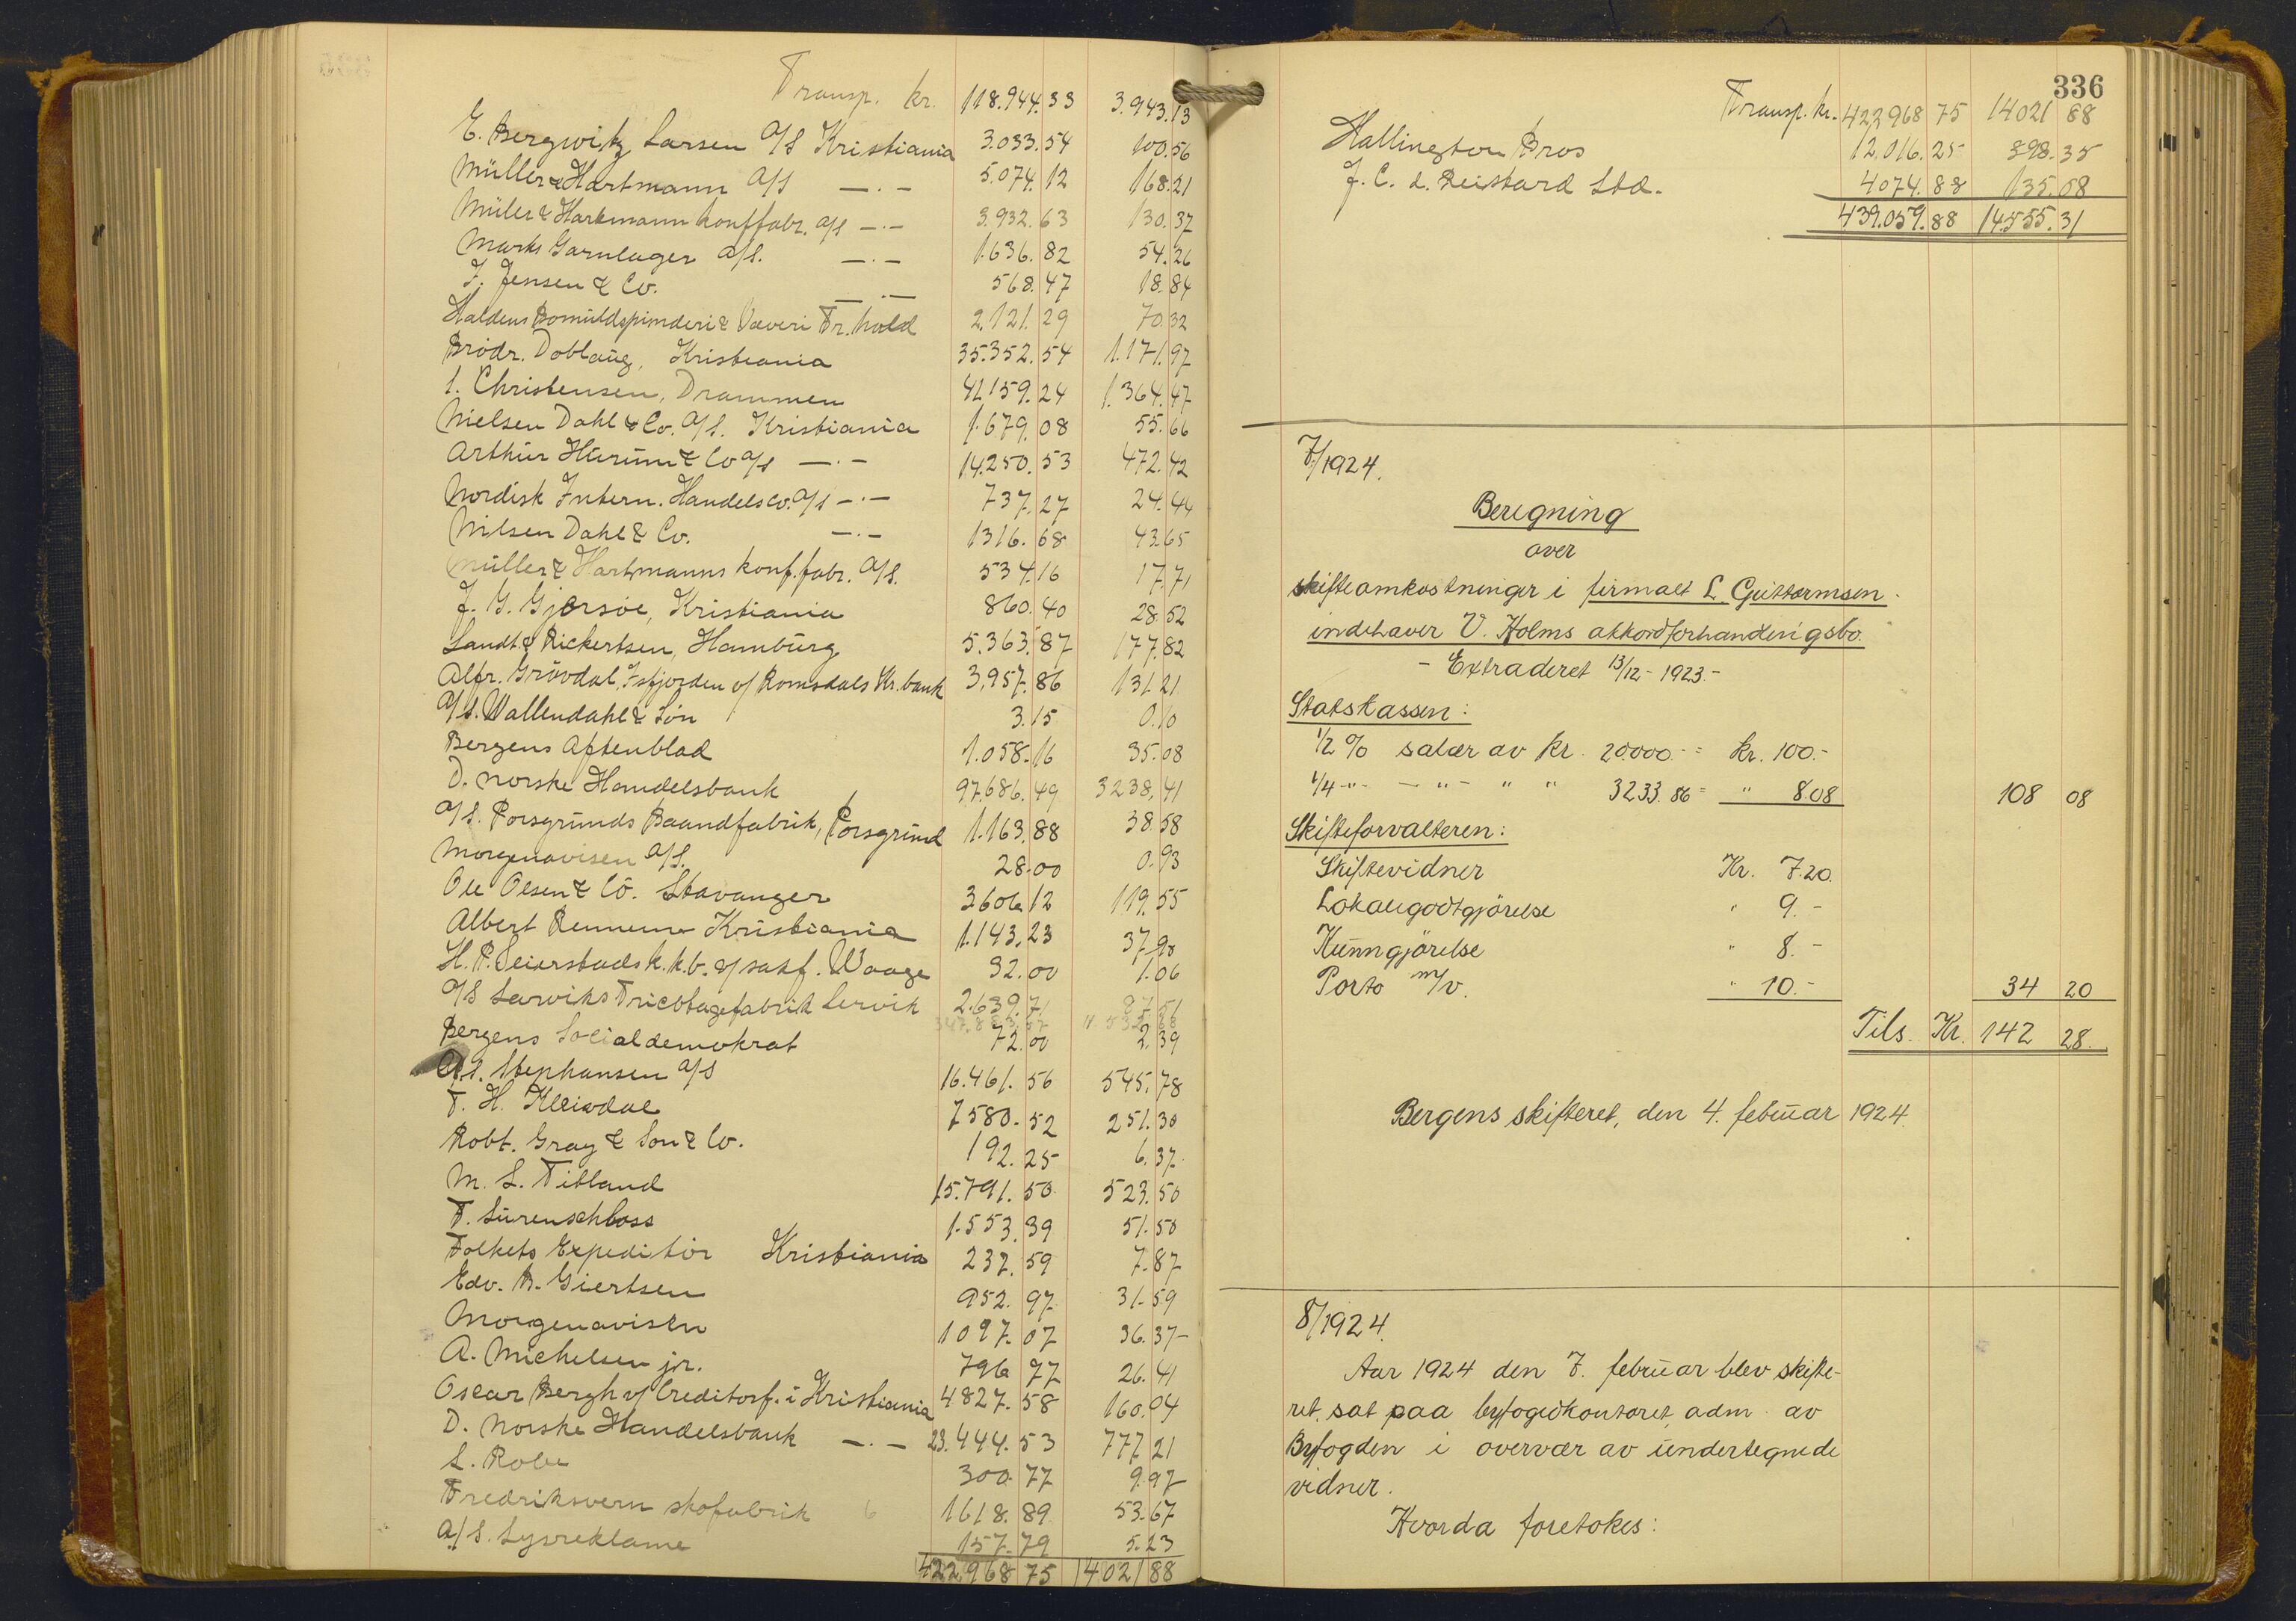 Transp. kr. 118.944.33 3.943.13
E. Bergwitz Larsen A/S Kristiania 3.033.54 100.56
Müller & Hartmann A/S —.— 5.074.12 168.21
Müller & Hartmann konffabr. A/S —.— 3.932.63 130.37
Marks Garnlager A/S. —.— 1.636.82 54.26
J. Jensen & Co. —.— 568.47 18.84
Haldens Bomuldspinderi & Væveri Fr.hald 2.121.29 70.32
Brödr. Doblaug, Kristiania 35.352.54 1.171.97
Christensen, Drammen 41159.24 1.364.47
Nielsen Dahl & Co. A/S. Kristiania 1.679.08 55.66
Arthur Hürum & Co A/S —.— 14.250.53 472.42
Nordisk Intern. Handelsco. A/S —.— 737.27 24.44
Nilsen Dahl & Co. —.— 1316.68 43.65
Müller & Hartmanns konf.fabr. A/S. 534.16 17.71
J. G. Gjørsöe, Kristiania 860.40 28.52
Landt & Rickertsen, Hamburg 5.363.87 177.82
Alfr. Grövdal, Isfjorden v/ Romsdals Kr.bank 3,957.86 131.21
A/S. Wallendahl & Sön 3.15 0.10
Bergens Aftenblad 1.058.16 35.08
D. norske Handelsbank 97.686.49 3238,41
A/S. Porsgrunds Baandfabrik, Porsgrund 1.163.88 38.58
Morgenavisen A/S. 28.00 0.93
Ole Olsen & Co. Stavanger 3606.12 119.55
Albert Kristiania 1.143.23 37.90
H. P. Seierstads k.k.b. v/ sakf. Waage 32.00 1.06
A/S Larviks Tricotagefabrik Larvik 2.639.71 87.51
Bergens Socialdemokrat 72.00 2.39
Stephansen A/S 16.461.56 545.78
T. H. Kleivdal 7580.52 251.30
Robt. Gray & Son & Co. 192.25 6.37
M. S. Titland 15.791.50 523.50
T. Sürenschloss 1.553.39 51.50
Folkets Expeditör Kristiania 237.59 7.87
Edv. B. Giertsen 952.97 31.59
Morgenavisen 1097.07 36.37
A. Michelsen jr. 796 77 26.41
Oscar Bergh v/ Creditorf. i Kristiania 4827.58 160.04
D. Norske Handelsbank —.— 23.444.53 777 21
S. Robe 300.77 9.97
Fredriksvern skofabrik 1618.89 53.67
A/S. Lysreklame 157.79 5.23
422968 75 14021 88
336
Transp. kr. 422968 75 14021 88
Hallington Bros 12.016.25 398.35
J. C. & Ltd. 4074.88 135.08
439.059.88 14.555.31
7/1924.
Beregning
over
skifteomkostninger i firmaet L. Guttormsen
indehaver V. Holms akkordforhandlingsbo.
- Extraderet 13/12 - 1923. -
Statskassen:
1/2 % salær av kr. 20.000.- = kr. 100.-
1/4 -"- - " - " " 3233.86 = " 8.08 108 08
Skifteforvalteren:
Skiftevidner Kr. 7.20.
Lokalegodtgjörelse " 9.-
Kunngjörelse " 8.-
Porto m/v. " 10.- 34 20
Tils. Kr. 142 28.
Bergens skifteret, den 4. februar 1924.
8/1924.
Aar 1924 den 7. februar blev skifte-
ret sat paa byfogedkontoret, adm. av
Byfogden i overvær av undertegnede
vidner.
Hvorda foretokes: